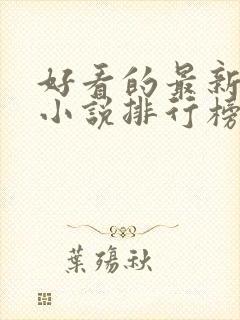 好看的最新
小说排行榜
葉殇秋